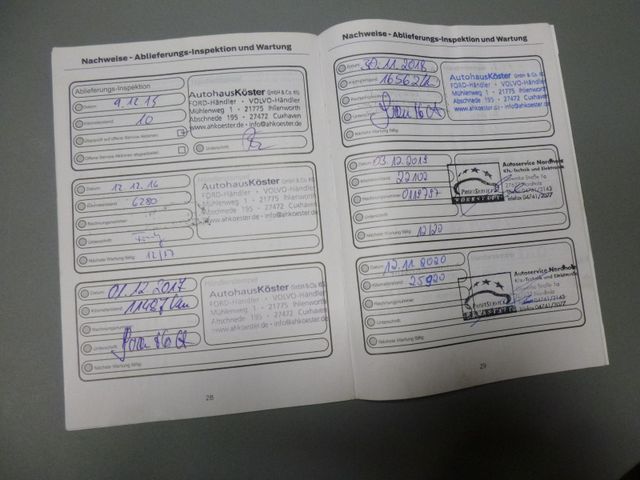 Nachweise - Ablieferungs-Inspektion und Wartung
Ablieferungs-Inspektion
Datum 9.12.15
Kilometerstand 10
Offene Service Aktionen
Unterschrift
AutohausKöster GmbH & Co. KG
FORD-Händler • VOLVO-Händler
Mühlenweg 1 - 21775 Ihlienworth
Abschnede 195 - 27472 Cuxhaven
www.ahkoester.de • info@ahkoester.de
Datum 12.12.16
Kilometerstand 6280
Rechnungsnummer
Unterschrift
Nächste Wartung fällig 12/17
AutohausKöster GmbH & Co. KG
FORD-Händler • VOLVO-Händler
Mühlenweg 1 - 21775 Ihlienworth
Abschnede 195 - 27472 Cuxhaven
www.ahkoester.de • info@ahkoester.de
Datum 01.12.2017
Kilometerstand
Rechnungsnummer
Unterschrift
Nächste Wartung fällig
AutohausKöster GmbH & Co. KG
FORD-Händler • VOLVO-Händler
Mühlenweg 1 - 21775 Ihlienworth
Abschnede 195 - 27472 Cuxhaven
www.ahkoester.de • info@ahkoester.de
28
Nachweise - Ablieferungs-Inspektion und Wartung
Datum 30.11.2018
Kilometerstand
Rechnungsnummer
Unterschrift
Nächste Wartung fällig
AutohausKöster GmbH & Co. KG
FORD-Händler • VOLVO-Händler
Mühlenweg 1 - 21775 Ihlienworth
Abschnede 195 - 27472 Cuxhaven
www.ahkoester.de • info@ahkoester.de
Datum 03.12.2019
Kilometerstand 22102
Unterschrift
Nächste Wartung fällig 12/20
PROFI SERVICE
WERKSTATT
Autoservice Nordholz
Kfz.-Technik und Elektronik
Telefon 04741/2143
Telefax 04741/2077
Datum 12.11.2020
Kilometerstand 25920
Rechnungsnummer
Unterschrift
Nächste Wartung fällig
PROFI SERVICE
WERKSTATT
Autoservice Nordholz
Kfz.-Technik und Elektronik
Telefon 04741/2143
Telefax 04741/2077
29